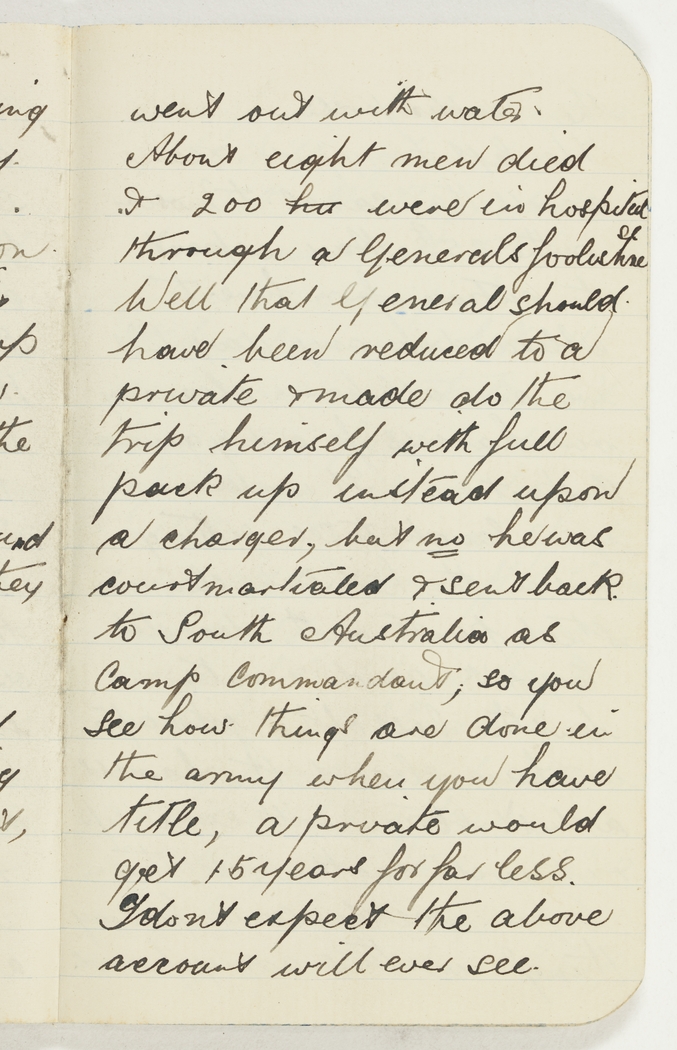 went out with water.
About eight men died
& 200 hu were in hospital
through a Generals foolishness
Well that General should
have been reduced to a
private & made do the
trip himself with full
pack up instead upon
a charger, but no he was
courtmartialed & sent back
to South Australia as
Camp Commandant; so you
see how things are done in
the army when you have
title, a private would
get 15 years for far less.
I dont expect the above
account will ever see.